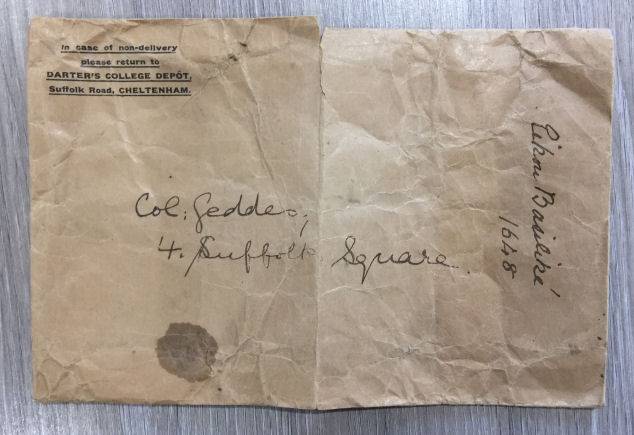 In case of non-delivery
please return to
DARTER'S COLLEGE DEPÔT,
Suffolk Road, CHELTENHAM.
Col: Geddes,
4. Suffolk Square.
Eikon Basiliké
1648